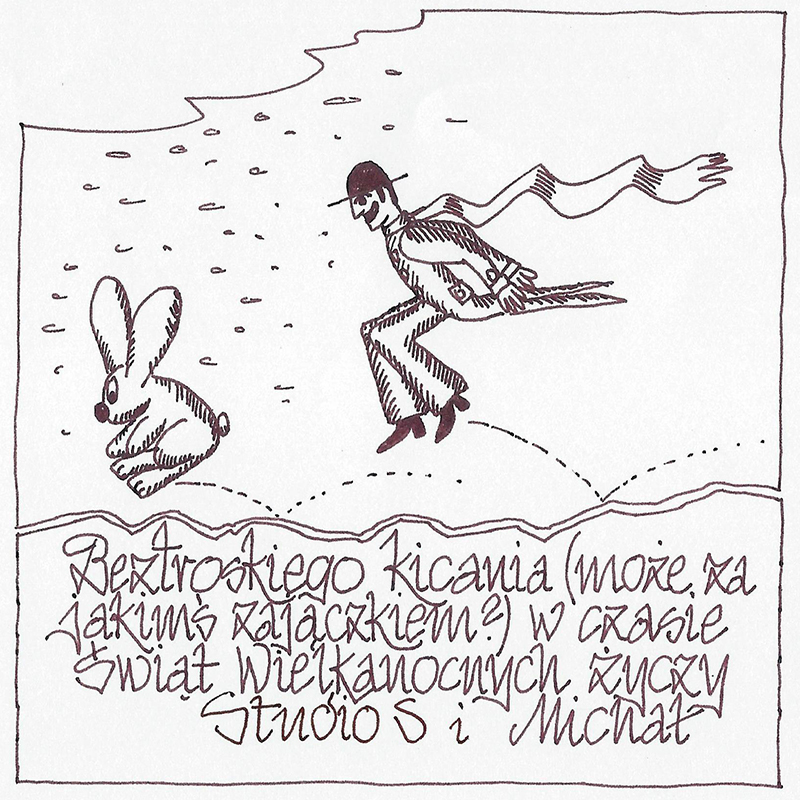 Beztroskiego kicania (może za
jakimś zajączkiem?) w czasie
Świąt Wielkanocnych życzy
Studio S i Michał